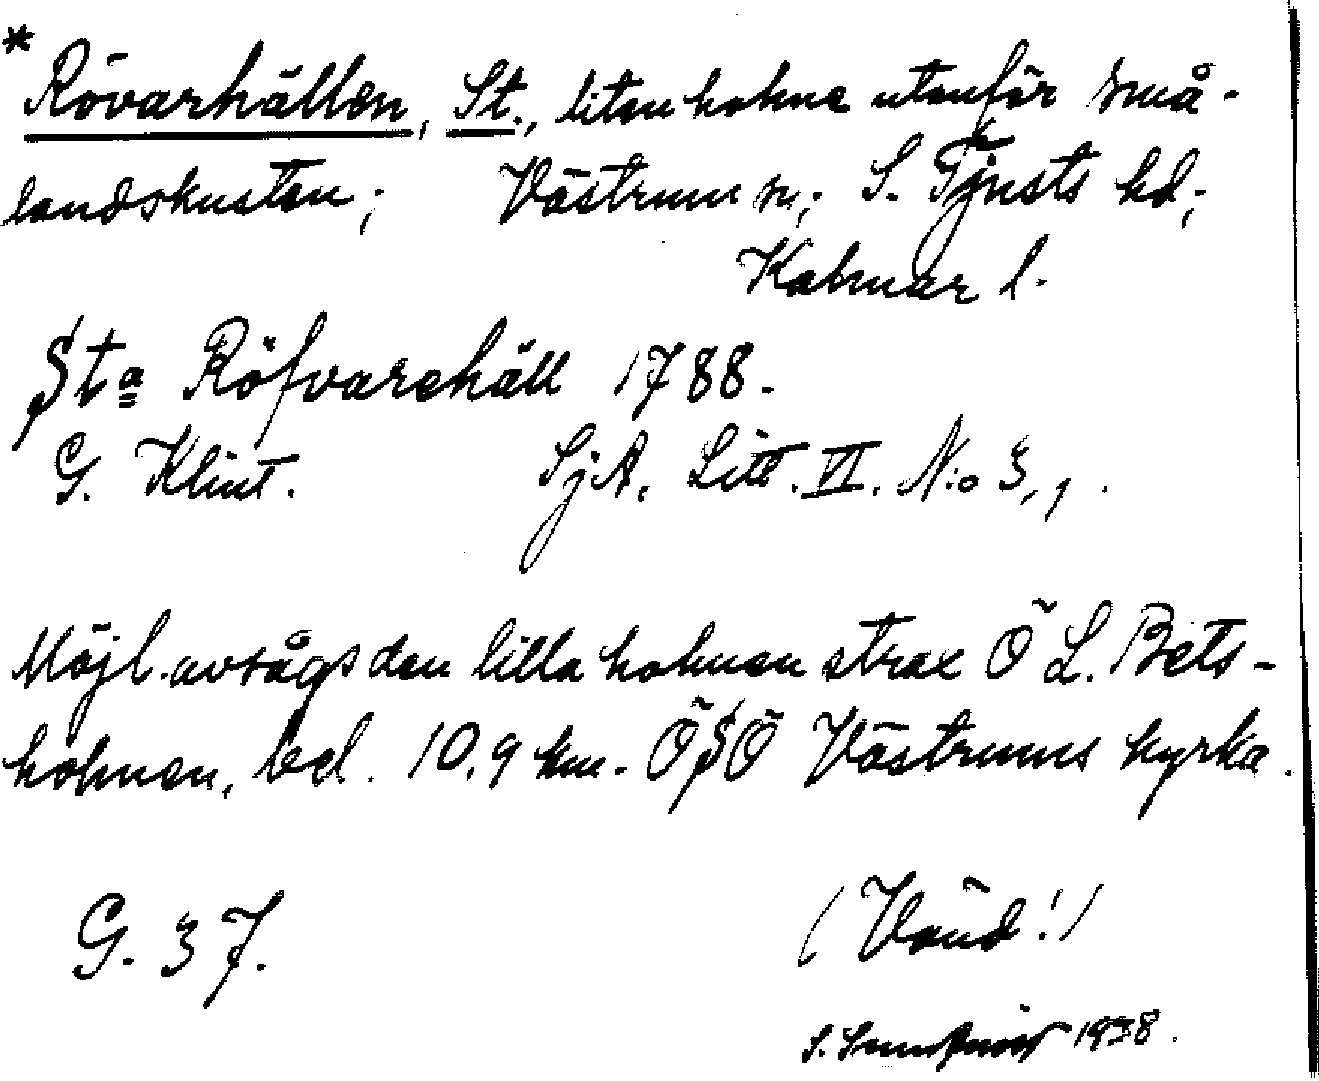 * Rövarhällen, St., liten holme utanför små-
landskusten; Västrum sn; S. Tjusts hd;
Kalmar l.
Sta Röfvarehäll 1788.
G. Klint. SjA. Litt. VI. N:o 3, 1.
Möjl. avsågs den lilla holmen strax Ö L. Bets-
holmen, bel. 10,9 km. ÖSÖ Västrums kyrka.
G. 37. (Vänd!)
S. 1938.